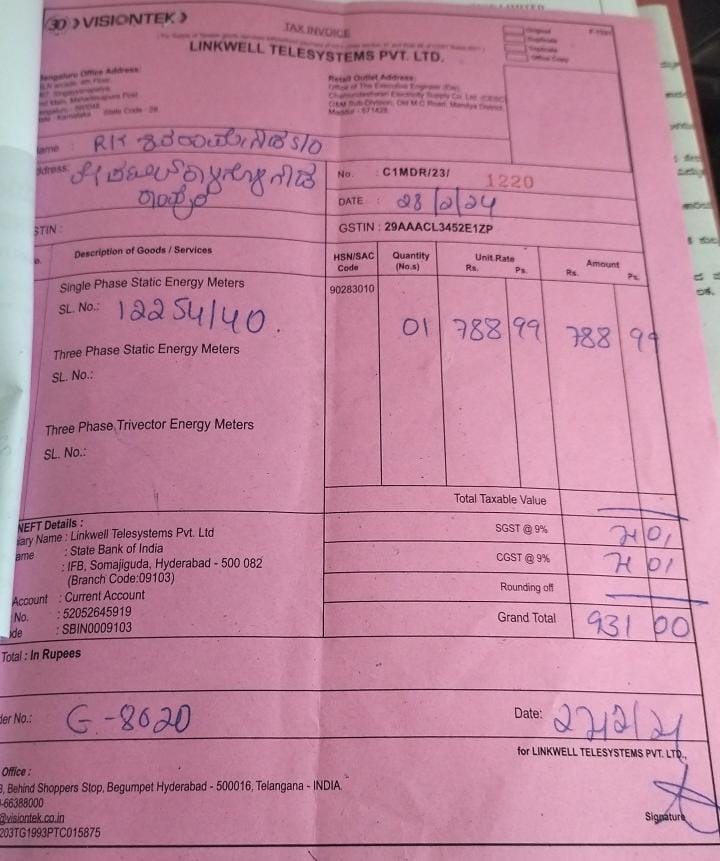 VISIONTEK
TAX INVOICE
LINKWELL TELESYSTEMS PVT. LTD.
Original
Duplicate
Triplicate
Office Copy
Bengaluru Office Address:
Retail Outlet Address:
Office of The Executive Engineer (Ele)
Chamundeshwari Electricity Supply Co. Ltd. (CESC)
O&M Sub-Division, Old M.C Road, Mandya District,
Maddur - 571428.
State Code : 29.
ame : RK S/O
ddress:
No. : C1MDR/23/ 1220
DATE : 28/2/24
STIN :
GSTIN : 29AAACL3452E1ZP
Description of Goods / Services
HSN/SAC Code
Quantity (No.s)
Unit Rate Rs. Ps.
Amount Rs. Ps.
Single Phase Static Energy Meters
90283010
SL. No.: 12254140. 01 788 99 788 99
Three Phase Static Energy Meters
SL. No.:
Three Phase Trivector Energy Meters
SL. No.:
Total Taxable Value
NEFT Details :
SGST @ 9% 71 01
iary Name : Linkwell Telesystems Pvt. Ltd
ame : State Bank of India
CGST @ 9% 71 01
: IFB, Somajiguda, Hyderabad - 500 082
(Branch Code:09103)
Rounding off
Account : Current Account
No. : 52052645919
Grand Total 931 00
de : SBIN0009103
Total : In Rupees
der No.: G-8620
Date: 27/2/24
for LINKWELL TELESYSTEMS PVT. LTD.,
Office :
3, Behind Shoppers Stop, Begumpet Hyderabad - 500016, Telangana - INDIA.
-66388000
@visiontek.co.in
Signature
203TG1993PTC015875